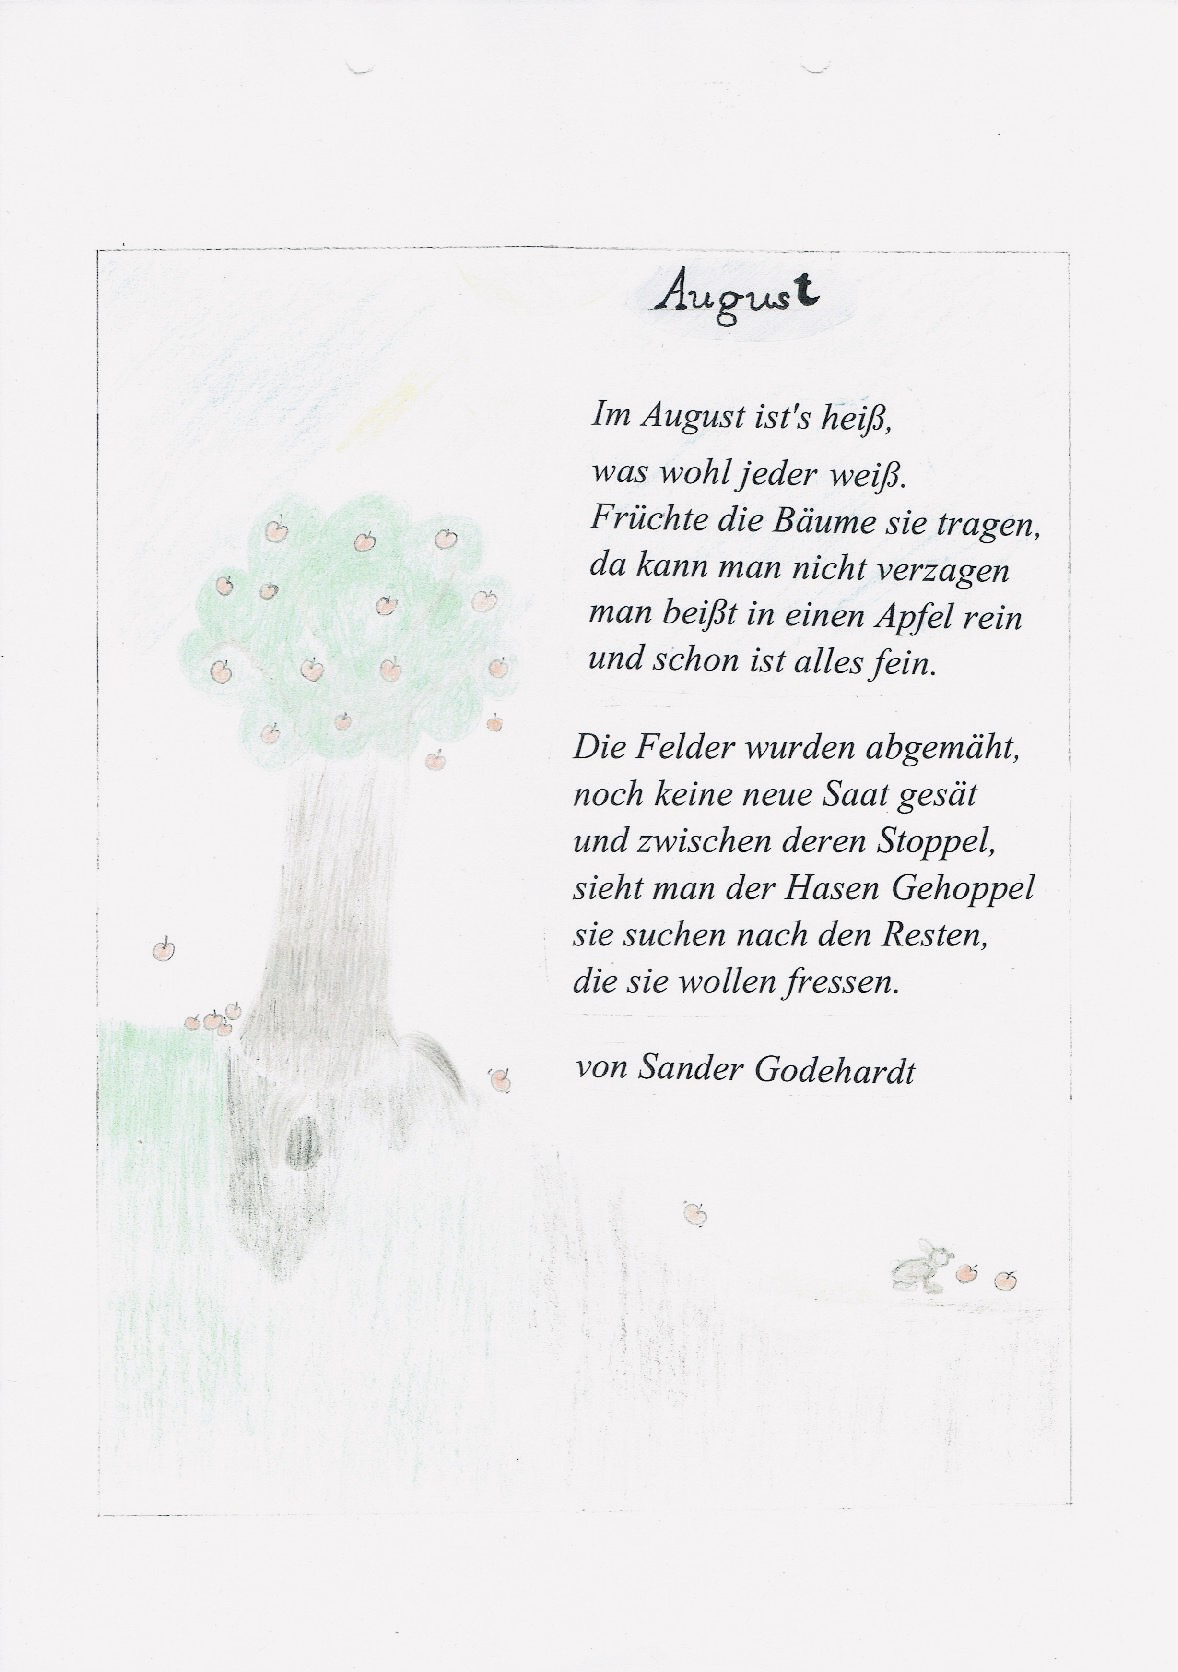 August
Im August ist's heiß,
was wohl jeder weiß.
Früchte die Bäume sie tragen,
da kann man nicht verzagen
man beißt in einen Apfel rein
und schon ist alles fein.
Die Felder wurden abgemäht,
noch keine neue Saat gesät
und zwischen deren Stoppel,
sieht man der Hasen Gehoppel
sie suchen nach den Resten,
die sie wollen fressen.
von Sander Godehardt